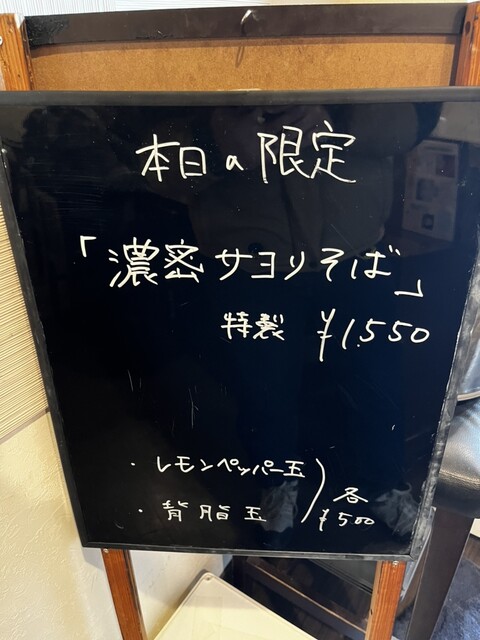 本日の限定
「濃密サヨリそば」
特製 ¥1,550
・レモンペッパー玉
・背脂玉
各
¥500